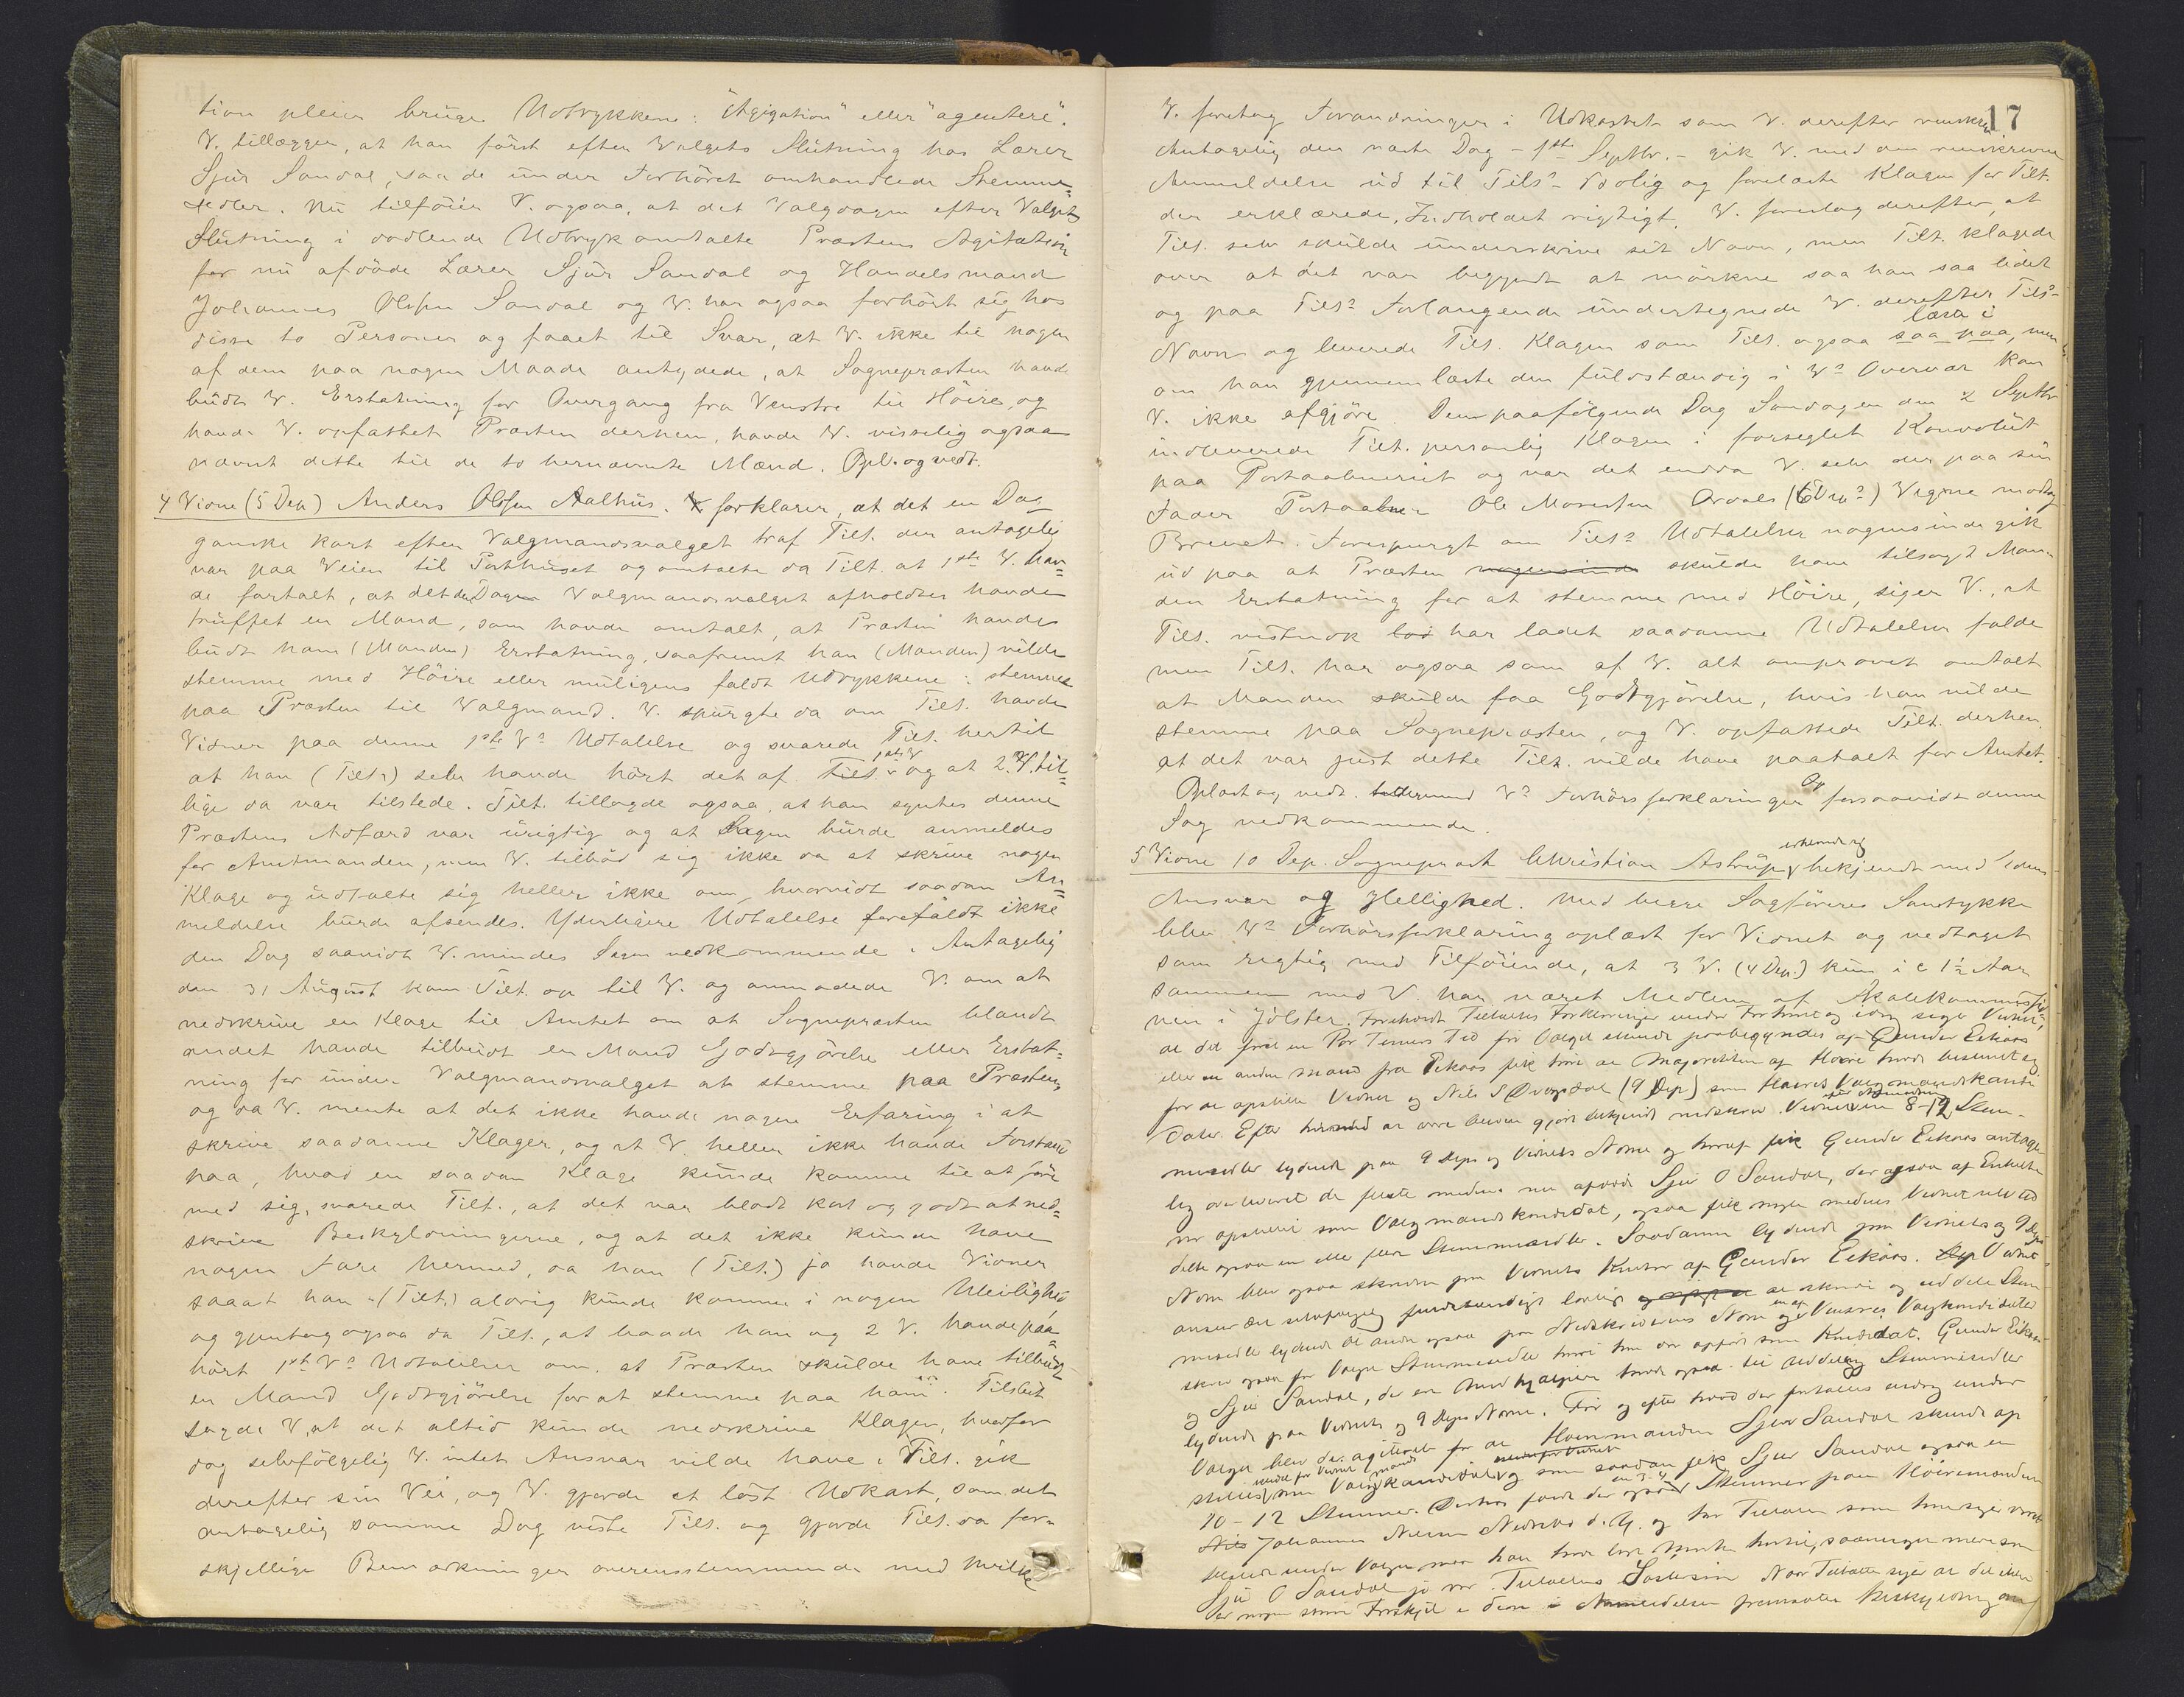 tion pleier bruge Udtrykkene: "Agigation" eller "agentere".
V. tillægger, at han först efter Valgets Slutning hos Lærer
Sjur Sandal, saa de under Forhöret omhandlede Stemme-
sedler. Nu tilföier V. ogsaa, at det Valgdagen efter Valgets
Slutning i dadlende Udtryk omtalte Præstens Agitation
for nu afdöde Lærer Sjur Sandal og Handelsmand
Johannes Olsen Sandal og V. har ogsaa forhört sig hos
disse to Personer og faaet til Svar, at V. ikke til nogen
af dem paa nogen Maade antydede, at Sognepræsten havde
budt V. Erstatning for Overgang fra Venstre til Höire, og
havde V. opfattet Præsten derhen, havde V. visselig ogsaa
nævnt dette til de to hernævnte Mænd. Opl. og vedt.
4 Vidne (5 Dep) Anders Olsen Aalhus. V. forklarer, at det en Dag
ganske kort efter Valgmandsvalget traf Tilt. der antagelig
var paa Veien til Posthuset og omtalte da Tilt. at 1ste V. hav-
de fortalt, at det den Dagen Valgmandsvalget afholdtes havde
truffet en Mand, som havde omtalt, at Præsten havde
budt ham (Manden) Erstatning, saafremt han (Manden) vilde
stemme med Höire eller muligens faldt Udtrykkene: stemme
paa Præsten til Valgmand. V. spurgte da om Tilt. havde
Vidner paa denne 1ste Vs Udtalelse og svarede Tilt. hertil
at han (Tilt.) selv havde hört det af Tilt. 1ste V og at 2. V. til-
lige da var tilstede. Tilt. tillagde ogsaa, at han syntes denne
Præstens Adfærd var urigtig og at Sagen burde anmeldes
for Amtmanden, men V. tilböd sig ikke da at skrive nogen
Klage og udtalte sig heller ikke om, hvorvidt saadan An-
meldelse burde afsendes. Yderligere Udtalelse forefaldt ikke
den Dag saavidt V. mindes Sagen vedkommende. Antagelig
den 31 August kom Tilt. op til V. og anmodede V. om at
nedskrive en Klage til Amtet om at Sognepræsten blandt
andet havde tilbudt en Mand Godtgjörelse eller Erstat-
ning for under Valgmandsvalget at stemme paa Præsten
og da V. mente at det ikke havde nogen Erfaring i at
skrive saadanne Klager, og at V. heller ikke havde Forstand
paa, hvad en saadan Klage kunde komme til at före
med sig, svarede Tilt., at det var blodt kort og godt at ned-
skrive Beskyldningerne, og at det ikke kunde have
nogen Fare hermed, da han (Tilt.) jo havde Vidner
saaat han (Tilt.) aldrig kunde komme i nogen Uleilighed
og gjentog ogsaa da Tilt., at baade han og 2 V. havde paa-
hört 1ste Vs Udtalelser om, at Præsten skulde have tilbudt
en Mand Godtgjörelse for at stemme paa ham. Tilslut
sagde V, at det altid kunde nedskrive Klagen, hvorfor
dog selvfölgelig V. intet Ansvar vilde have. Tilt. gik
derefter sin Vei, og V. gjorde et löst Udkast, som det
antagelig samme Dag viste Tilt. og gjorde Tilt. da for-
skjellige Bemærkninger overensstemmende med hvilke
17
V. foretog Forandringer i Udkastet som V. derefter renskrev.
Antagelig den næste Dag – 1ste Septbr. – gik V. med den renskrevne
Anmeldelse ud til Tilts Bolig og forelæste Klagen for Tilt.
der erklærede, Indholdet rigtigt. V. foreslog derefter, at
Tilt. selv skulde underskrive sit Navn, men Tilt. klagede
over at det var begyndt at mörkne saa han saa lidet
og paa Tilts Forlangende undertegnede V. derefter Tilts
Navn og leverede Tilt. Klagen som Tilt. ogsaa læste i saa paa, men
om han gjennemlæste den fuldstændig i Vs Overvær kan
V. ikke afgjöre. Den paafölgende Dag Söndagen den 2 Septbr
indleverede Tilt. personlig Klagen i forseglet Konvolut
paa Postaabneriet og var det endda V. selv der paa sin
Fader Postaabner Ole Mosessen Aardals (6 Dep.) Vegne modtog
Brevet. Forespurgt om Tilts Udtalelser nogensinde gik
ud paa at Præsten nogensinde skulde have tilsagt Man-
den Erstatning for at stemme med Höire, siger V., at
Tilt. vistnok lod har ladet saadanne Udtalelser falde
men Tilt. har ogsaa som af V. alt omprovet omtalt
at Manden skulde faa Godtgjörelse, hvis han vilde
stemme paa Sognepræsten, og V. opfattede Tilt. derhen
at det var just dette Tilt. vilde have paatalt for Amtet.
Oplæst og vedt. Vs Forhörsforklaringer Op forsaavidt denne
Sag vedkommende.
5 Vidne 10 Dep. Sogneprest Christian Astrup, erkjendte sig bekjendt med Edens
Ansvar og Hellighed. Med begge Sagföreres Samtykke
blev Vs Forhörsforklaring oplæst for Vidnet og vedtaget
som rigtig med Tilföiende, at 3 V. (4 Dep.) kun i c 1½ Aar
sammen med V. har været Medlem af Skolekommissio-
nen i Jölster. Foreholdt Tiltaltes Forklaringer under Forhöret og idag siger Vidnet,
at det först en Par Timers Tid för Valget skulde paabegyndes af Gunder Eikaas
eller en anden Mand fra Eikaas fik höre at Majoriteten af Höire havde bestemt sig
for at opstille Vidnet og Nils S Dvergsdal (9 Dep) som Höires Valgmandskandi-
dater. Efter hermed at være bleven gjort bekjendt nedskrev Vidnet paa Anmodning en 8–12 Stem-
mesedler lydende paa 9 Deps og Vidnets Navne og heraf fik Gunder Eikaas antage-
lig overleveret de fleste medens nu afdöde Sjur O Sandal, der ogsaa af Enkelte
var opstillet som Valgmandskandidat, ogsaa fik nogle medens Vidnet selv ud
delte ogsaa en eller flere Stemmesedler. Saadanne lydende paa Vidnets og 9 Deps
Navn blev ogsaa skrevne paa Vidnets Kontor af Gunder Eikaas. Dep Vidnet
anser det selvfölgelig fuldstændigt lovligt at skrive og uddele Stem-
mesedler lydende blandt andre ogsaa paa Nedskriverens Navn og en af Venstres Valgkandidater
skrev ogsaa för Valget Stemmesedler hvori han var opfört som Kandidat. Gunder Eikaas
og Sjur Sandal, der var havde ogsaa til Uddeling Stemmesedler
lydende paa Vidnets og 9 Deps Navne. För og efter hvad der fortaltes endog under
Valget blev der agiteret for at Höiremanden Sjur Sandal skulde op
stilles istedet for Vidnet som Valgmandskandidat og som saadan fik Sjur Sandal ogsaa en
10–12 Stemmer. Derhos faldt der ogsaa en 3–4 Stemmer paa Höiremanden
Nils Johannes Nilsen Nedrebö d.Y. og har Tiltalte som han siger været
tilstede under Valget maa han have lagt Mærke hertil, saameget mere som
Sjur O Sandal jo var Tiltaltes Söstersön. Naar Tiltalte siger at det ikke
er nogen större Forskjel i den i Anmeldelsen fremsatte Beskyldning om